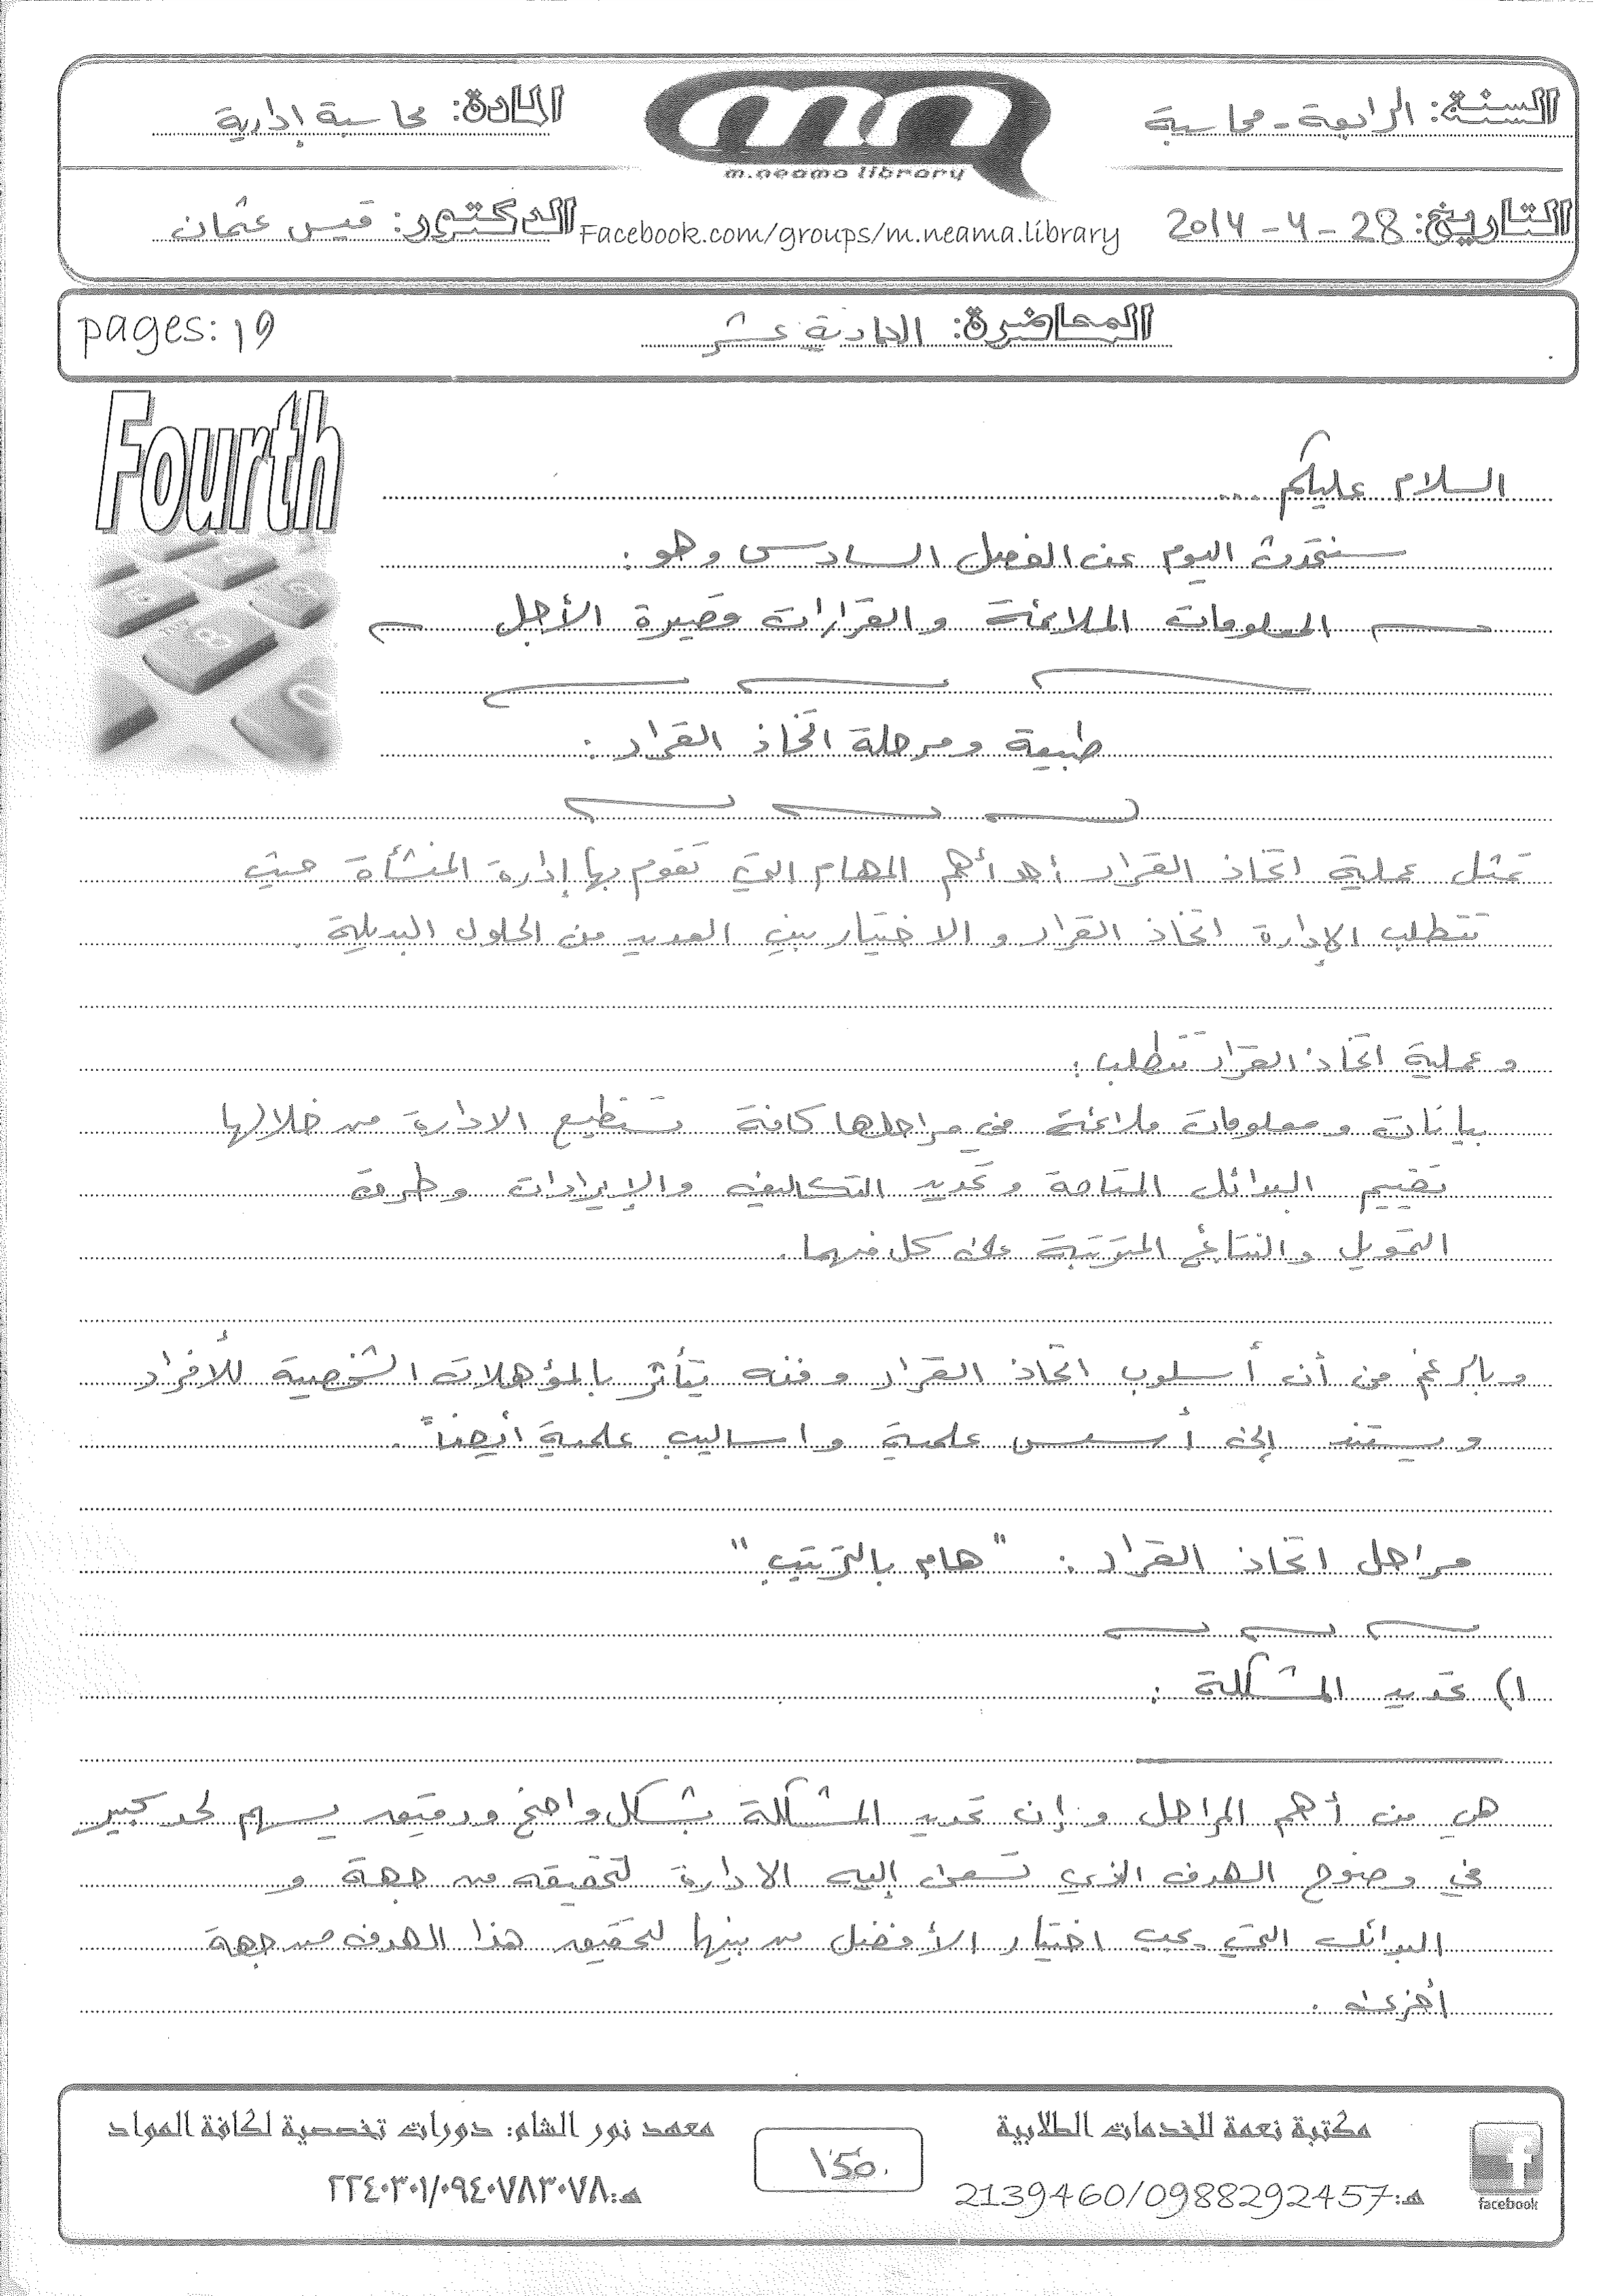 السنة: الرابعة - محاسبة
المادة: محاسبة إدارية
m.neama library
التاريخ: 28 - 4 - 2014
Facebook.com/groups/m.neama.library
الدكتور: قيس عثمان
المحاضرة: الحادية عشر
pages: 19
Fourth
السلام عليكم ...
سنتحدث اليوم عن الفصل السادس وهو:
المعلومات الملائمة والقرارات قصيرة الأجل
طبيعة ومرحلة اتخاذ القرار:
تمثل عملية اتخاذ القرار أحد أهم المهام التي تقوم بها إدارة المنشأة حيث
تتطلب الإدارة اتخاذ القرار والاختيار بين العديد من الحلول البديلة.
وعملية اتخاذ القرار تتطلب:
بيانات ومعلومات ملائمة في مراحلها كافة تستطيع الادارة من خلالها
تقييم البدائل المتاحة وتحديد التكاليف والإيرادات وطرق
التمويل والنتائج المترتبة على كل منهما.
وبالرغم من أن أسلوب اتخاذ القرار وفنه يتأثر بالمؤهلات الشخصية للأفراد
ويستند إلى أسس علمية واساليب علمية أيضاً.
مراحل اتخاذ القرار: "هام بالترتيب"
١) تحديد المشكلة:
هي من أهم المراحل وإن تحديد المشكلة بشكل واضح ودقيق يسهم لحد كبير
في وضوح الهدف الذي تسعى إليه الادارة لتحقيقه من جهة و
البدائل التي يجب اختيار الأفضل من بينها لتحقيق هذا الهدف من جهة
أخرى.
مكتبة نعمة للخدمات الطلابية
هـ: 2139460/0988292457
معهد نور الشام: دورات تخصصية لكافة المواد
هـ: ٢٢٤٠٣٠١/٠٩٤٠٧٨٣٠٧٨
facebook